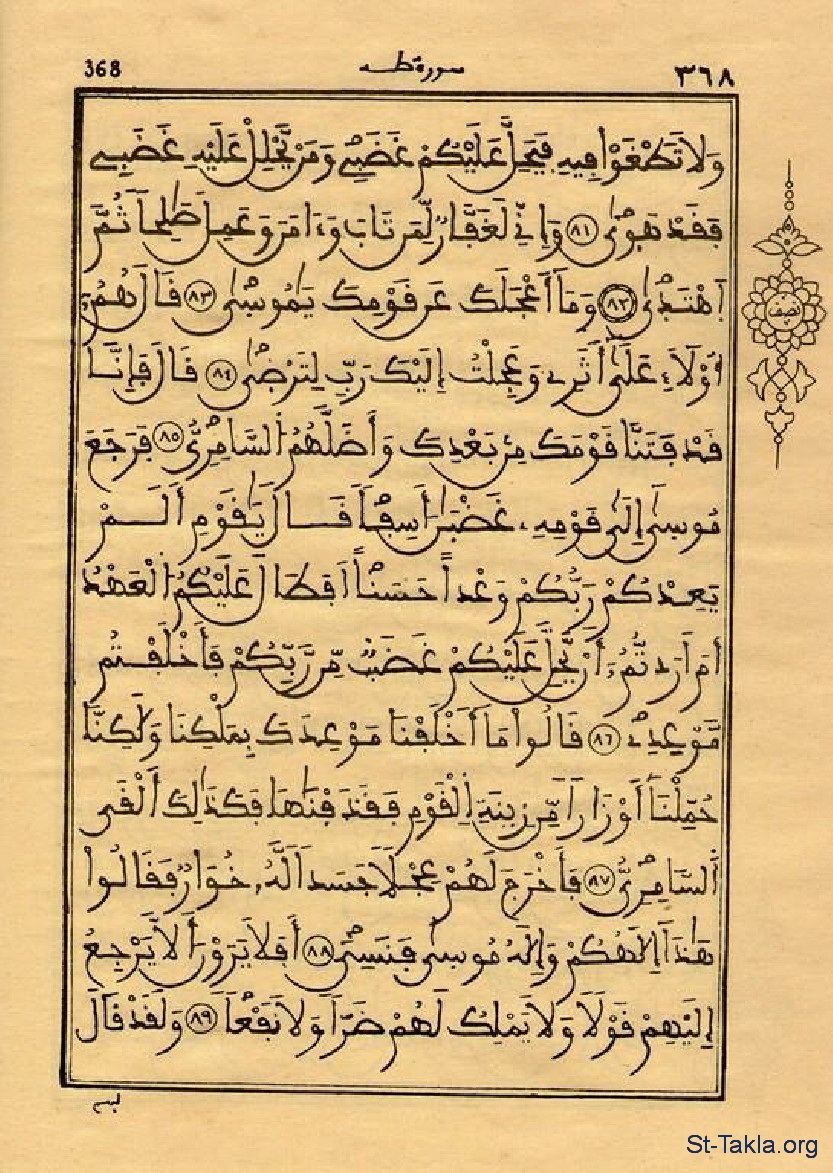 368 سورة طه ٣٦٨
وَلَا تَطْغَوْا فِيهِ فَيَحِلَّ عَلَيْكُمْ غَضَبِے وَمَنْ يَّحْلِلْ عَلَيْهِ غَضَبِے
فَقَدْ هَوٰى ٨١ وَإِنِّے لَغَفَّارٌ لِّمَن تَابَ وَءَامَنَ وَعَمِلَ صَٰلِحاً ثُمَّ
اَهْتَدٰى ٨٢ وَمَا أَعْجَلَكَ عَن قَوْمِكَ يَٰمُوسٰى ٨٣ قَالَ هُمُ
أُوْلَاءِ عَلَىٰ أَثَرِے وَعَجِلْتُ إِلَيْكَ رَبِّ لِتَرْضٰى ٨٤ قَالَ فَإِنَّا
قَدْ فَتَنَّا قَوْمَكَ مِنۢ بَعْدِكَ وَأَضَلَّهُمُ اُلسَّامِرِىُّ ٨٥ فَرَجَعَ
مُوسَىٰ إِلَىٰ قَوْمِهِۦ غَضْبَٰنَ أَسِفاً قَالَ يَٰقَوْمِ أَلَمْ
يَعِدْكُمْ رَبُّكُمْ وَعْداً حَسَناً اَفَطَالَ عَلَيْكُمُ اُلْعَهْدُ
أَمَ اَرَدتُّمُۥ أَنْ يَّحِلَّ عَلَيْكُمْ غَضَبٌ مِّن رَّبِّكُمْ فَأَخْلَفْتُم
مَّوْعِدِے ٨٦ قَالُوا مَا أَخْلَفْنَا مَوْعِدَكَ بِمَلْكِنَا وَلَٰكِنَّا
حُمِّلْنَا أَوْزَاراً مِّن زِينَةِ اِلْقَوْمِ فَقَذَفْنَٰهَا فَكَذَٰلِكَ أَلْقَى
اَلسَّامِرِىُّ ٨٧ فَأَخْرَجَ لَهُمْ عِجْلاً جَسَداً لَّهُۥ خُوَارٌ فَقَالُوا
هَٰذَا إِلَٰهُكُمْ وَإِلَٰهُ مُوسٰى فَنَسِىَ ٨٨ أَفَلَا يَرَوْنَ أَلَّا يَرْجِعُ
إِلَيْهِمْ قَوْلاً وَلَا يَمْلِكُ لَهُمْ ضَرّاً وَلَا نَفْعاً ٨٩ وَلَقَدْ قَالَ
نصف
لهم
St-Takla.org